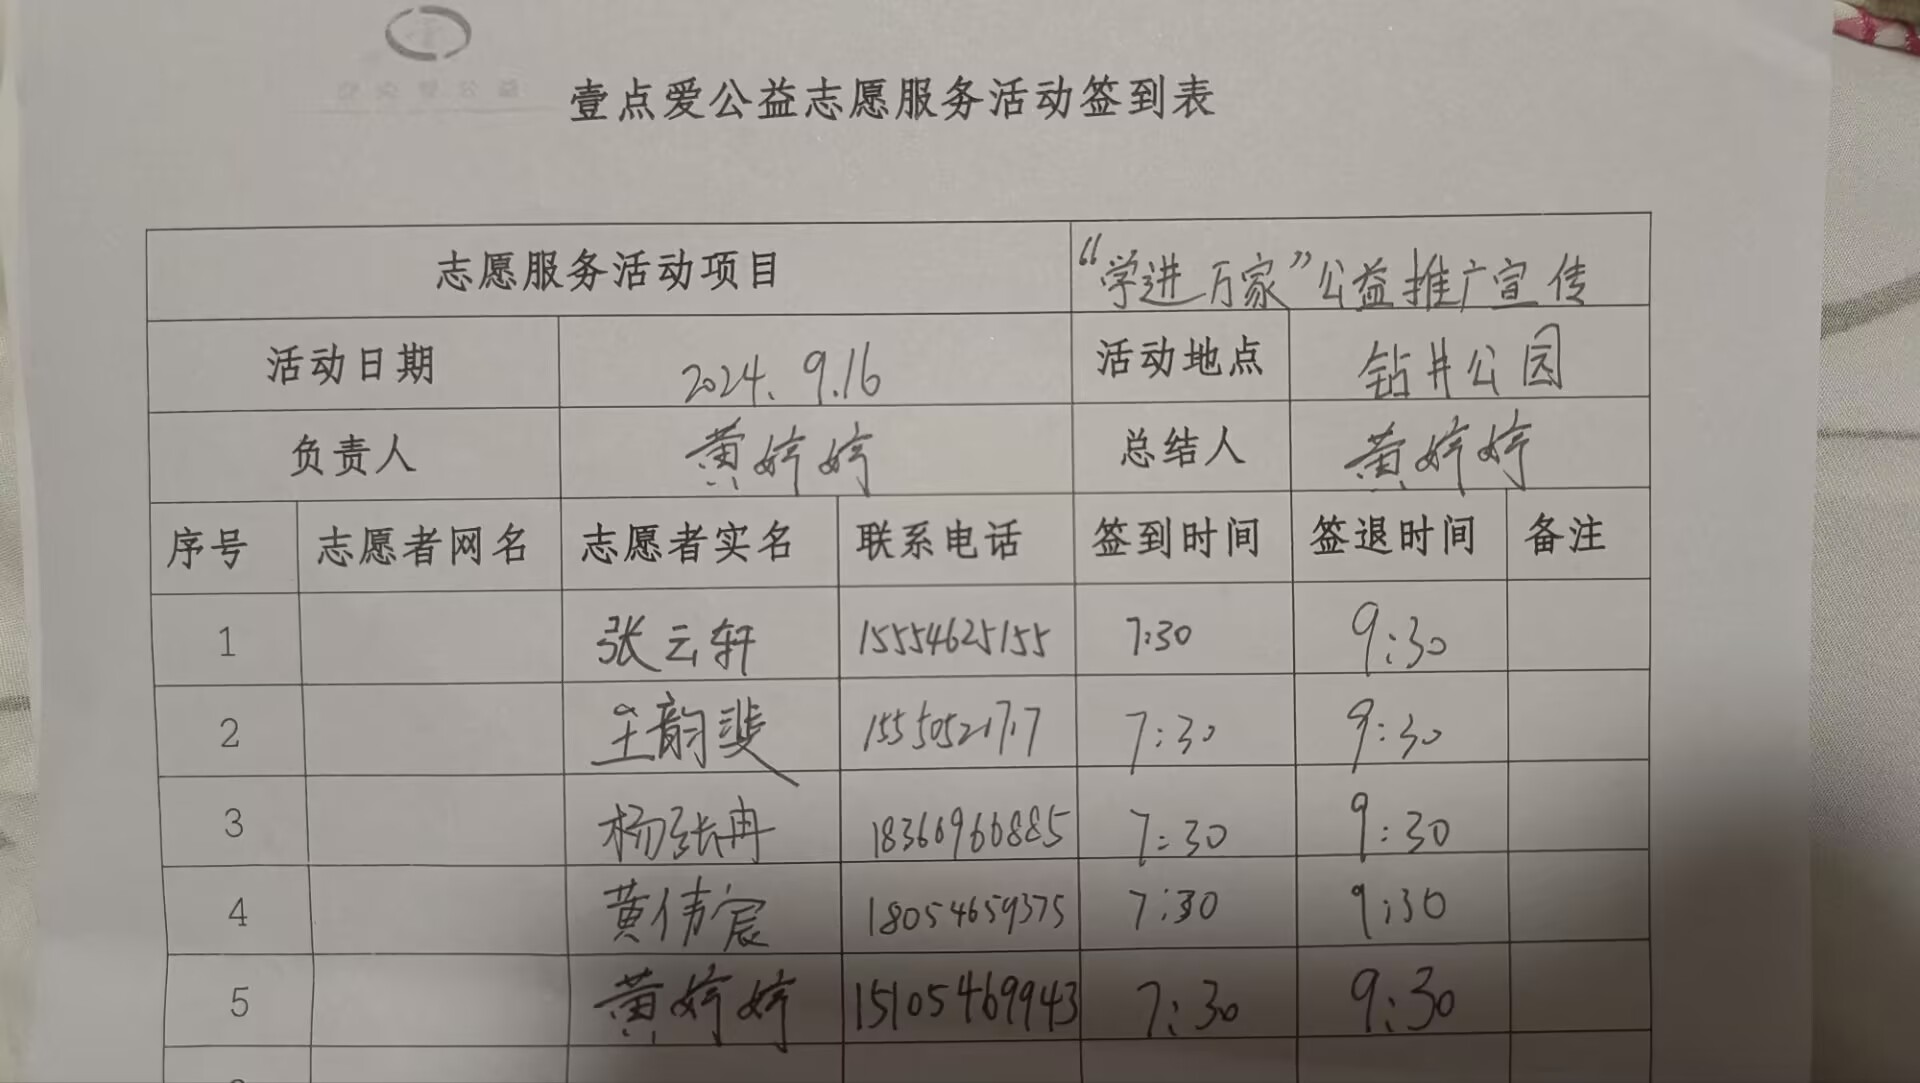 壹点爱公益志愿服务活动签到表
志愿服务活动项目 “学进万家”公益推广宣传
活动日期 2024.9.16 活动地点 钻井公园
负责人 黄婷婷 总结人 黄婷婷
序号 志愿者网名 志愿者实名 联系电话 签到时间 签退时间 备注
1 张云轩 15554625155 7:30 9:30
2 王韵斐 15550521717 7:30 9:30
3 杨张冉 18366966885 7:30 9:30
4 黄伟宸 18054659375 7:30 9:30
5 黄婷婷 15105469943 7:30 9:30